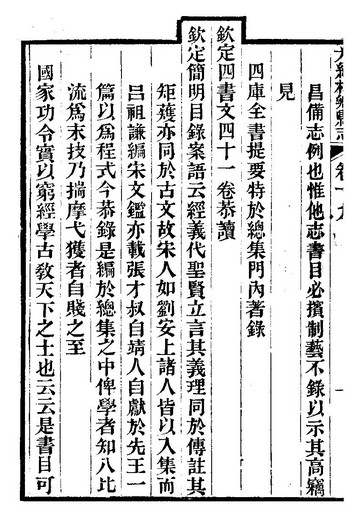 昌備志例也惟他志書目必擯制藝不錄以示其高竊
見
四庫全書提要特於總集門內著錄
欽定四書文四十一卷恭讀
欽定簡明目錄案語云經義代聖賢立言其義理同於傳註其
矩矱亦同於古文故宋人如劉安上諸人皆以入集而
呂祖謙編宋文鑑亦載張才叔自靖人自獻於先王一
篇以為程式今恭錄是編於總集之中俾學者知八比
流為末技乃揣摩弋獲者自賤之至
國家功令實以窮經學古敎天下之士也云云是書目可